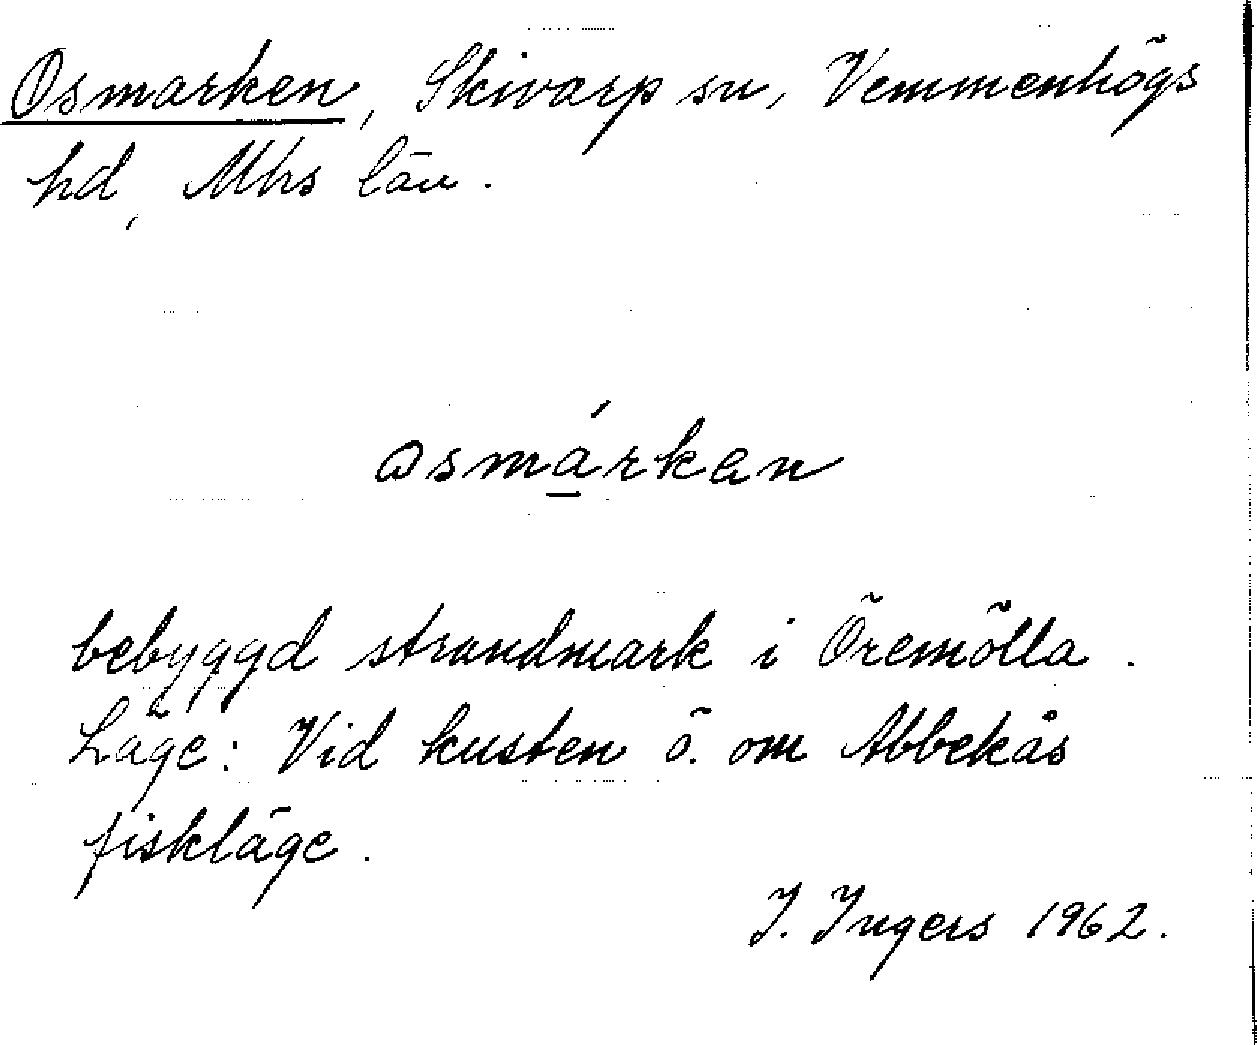 Osmarken, Skivarp sn, Vemmenhögs
hd, Mhs län.
osmárkan
bebyggd strandmark i Öremölla.
Läge: Vid kusten ö. om Abbekås
fiskläge.
I. Ingers 1962.